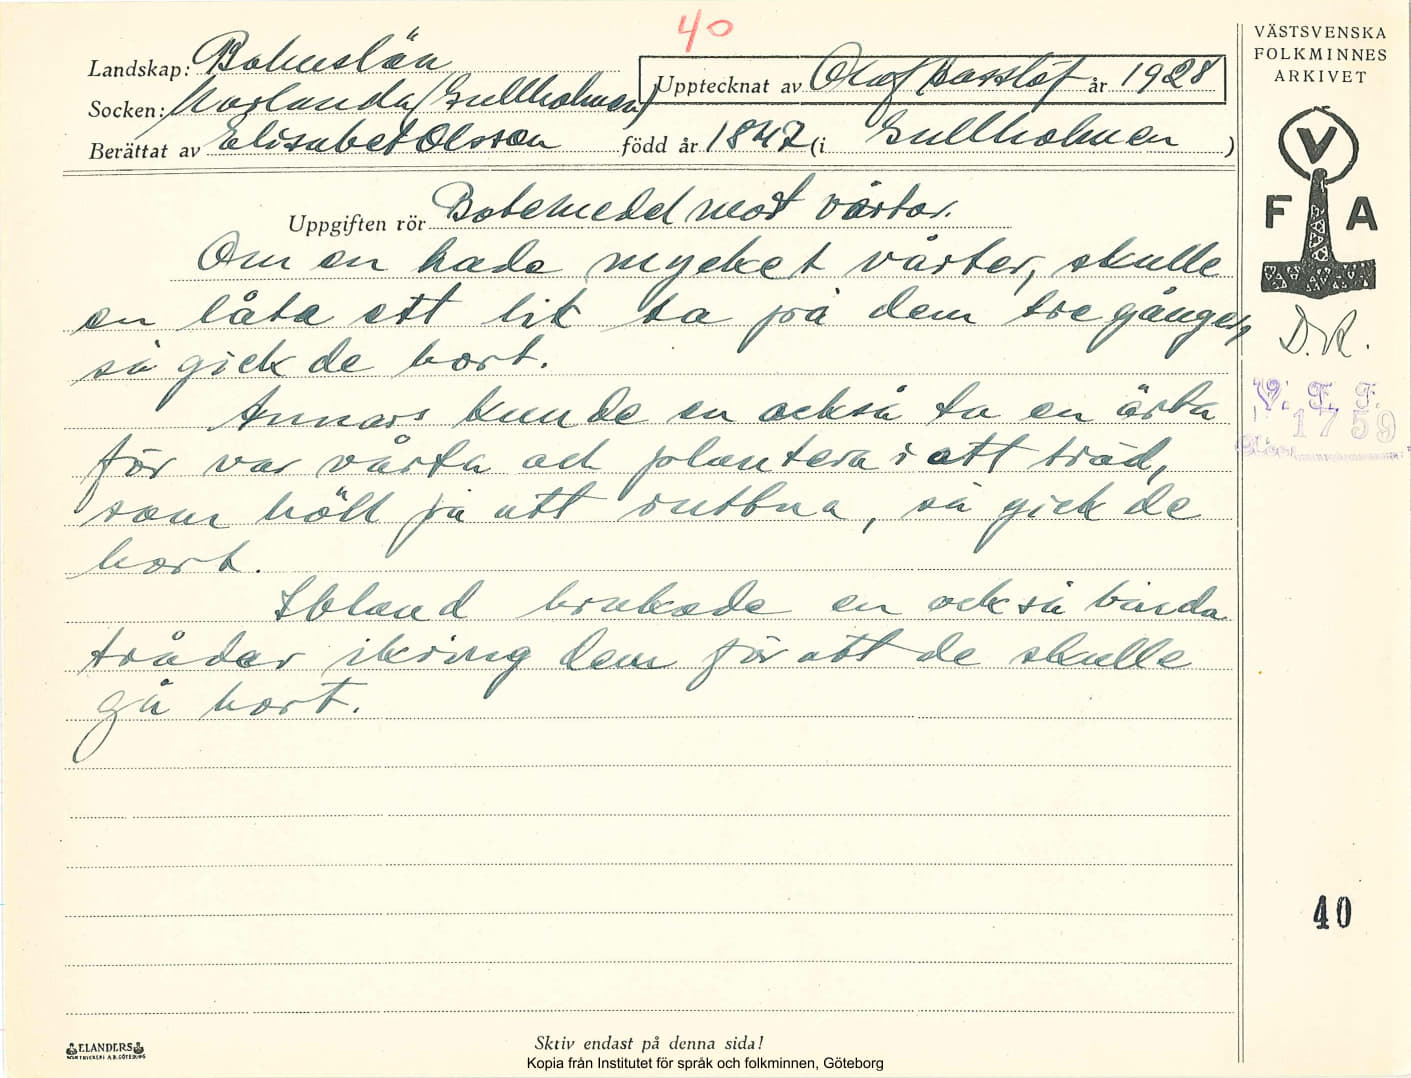 40
Landskap: Bohuslän
Socken: Morlanda (Gullholmen)
Upptecknat av Olof Hasslöf år 1928
Berättat av Elisabet Olsson född år 1847 (i Gullholmen)
Uppgiften rör Botemedel mot vårtor.
Om en hade mycket vårter, skulle
en låta ett lik ta på dem tre gånger,
så gick de bort.
Annars kunde en också ta en ärta
för var vårta och plantera i ett träd,
som höll på att ruttna, så gick de
bort.
Ibland brukade en också binda
trådar ikring dem för att de skulle
gå bort.
VÄSTSVENSKA
FOLKMINNES
ARKIVET
V
F A
D.R.
V. F. F.
1759
40
ELANDERS
Skriv endast på denna sida!
Kopia från Institutet för språk och folkminnen, Göteborg